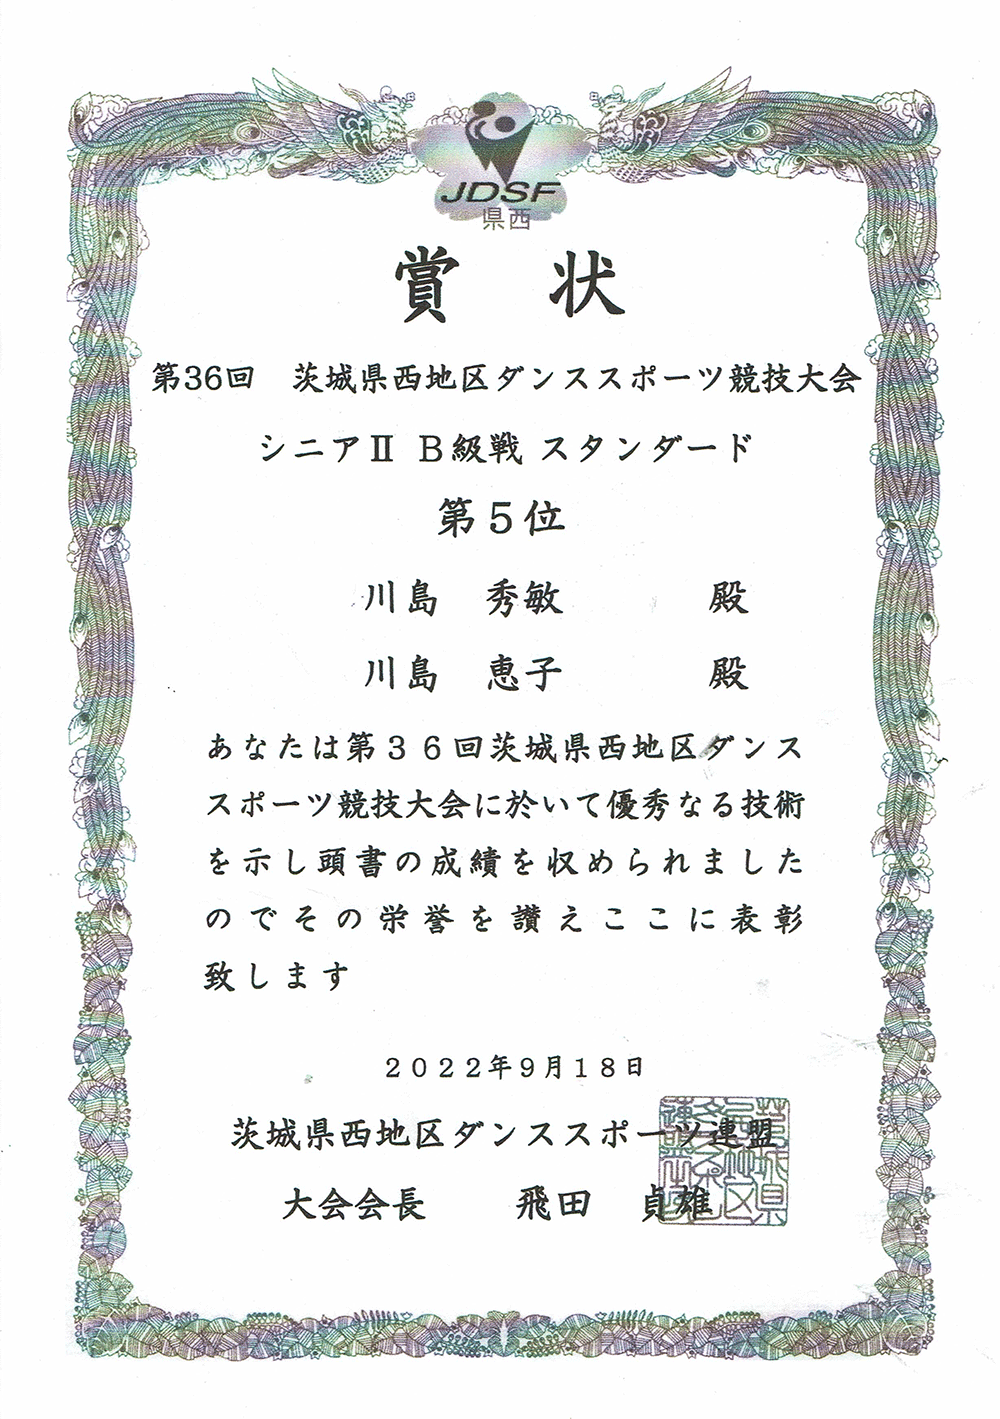 JDSF
県西
賞　状
第36回　茨城県西地区ダンススポーツ競技大会
シニアⅡ B級戦 スタンダード
第５位
川島　秀敏　殿
川島　恵子　殿
あなたは第３６回茨城県西地区ダンス
スポーツ競技大会に於いて優秀なる技術
を示し頭書の成績を収められました
のでその栄誉を讃えここに表彰
致します
２０２２年９月１８日
茨城県西地区ダンススポーツ連盟
大会会長　飛田　貞雄